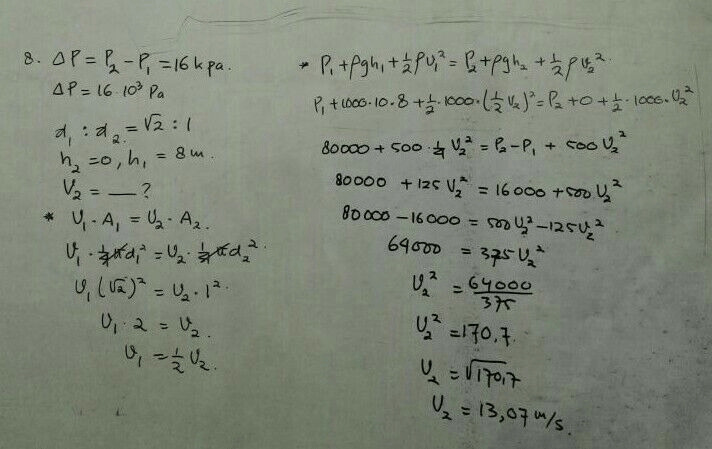 8. ΔP = P₂ - P₁ = 16 kpa.
ΔP = 16 · 10³ Pa
d₁ : d₂ = √2 : 1
h₂ = 0, h₁ = 8 m.
V₂ = — ?
* V₁ · A₁ = V₂ · A₂.
V₁ · ¼πd₁² = V₂ · ¼πd₂².
V₁ (√2)² = V₂ · 1².
V₁ · 2 = V₂.
V₁ = ½ V₂.
* P₁ + ρgh₁ + ½ρV₁² = P₂ + ρgh₂ + ½ρV₂².
P₁ + 1000·10·8 + ½·1000·(½V₂)² = P₂ + 0 + ½·1000·V₂²
80000 + 500·¼V₂² = P₂ - P₁ + 500V₂²
80000 + 125V₂² = 16000 + 500V₂²
80000 - 16000 = 500V₂² - 125V₂²
64000 = 375V₂²
V₂² = 64000/375
V₂² = 170,7.
V₂ = √170,7
V₂ = 13,07 m/s.